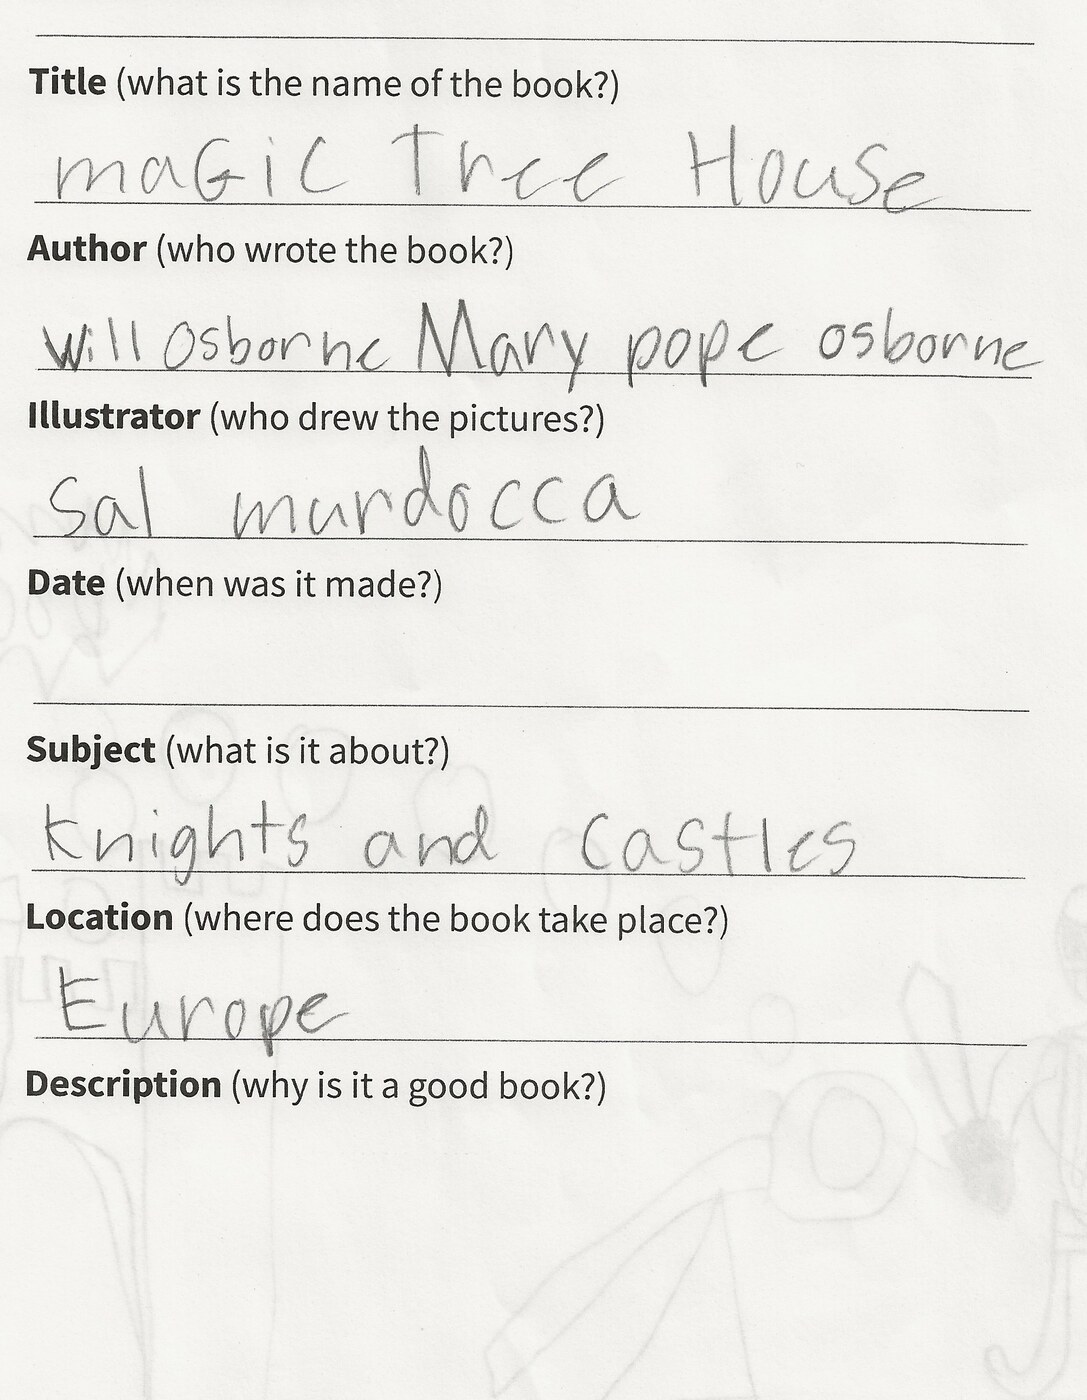 Title (what is the name of the book?)
maGiC Tree House
Author (who wrote the book?)
Will Osborne Mary pope osborne
Illustrator (who drew the pictures?)
Sal murdocca
Date (when was it made?)
Subject (what is it about?)
Knights and Castles
Location (where does the book take place?)
Europe
Description (why is it a good book?)